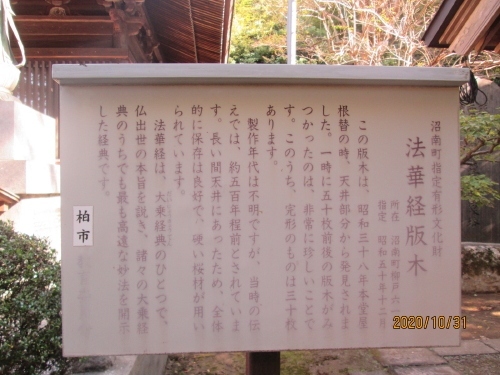 沼南町指定有形文化財
法華経版木
所在 沼南町柳戸六
指定 昭和五十年十二月
この版木は、昭和三十八年本堂屋
根替の時、天井部分から発見されま
した。一時に五十枚前後の版木がみ
つかったのは、非常に珍しいことで
す。このうち、完形のものは三十枚
あります。
製作年代は不明ですが、当時の伝
えでは、約五百年程前とされていま
す。長い間天井にあったため、全体
的に保存は良好で、硬い桜材が用い
られています。
法華経は、大乗経典のひとつで、
仏出世の本旨を説き、諸々の大乗経
典のうちでも最も高遠な妙法を開示
した経典です。
柏市
2020/10/31